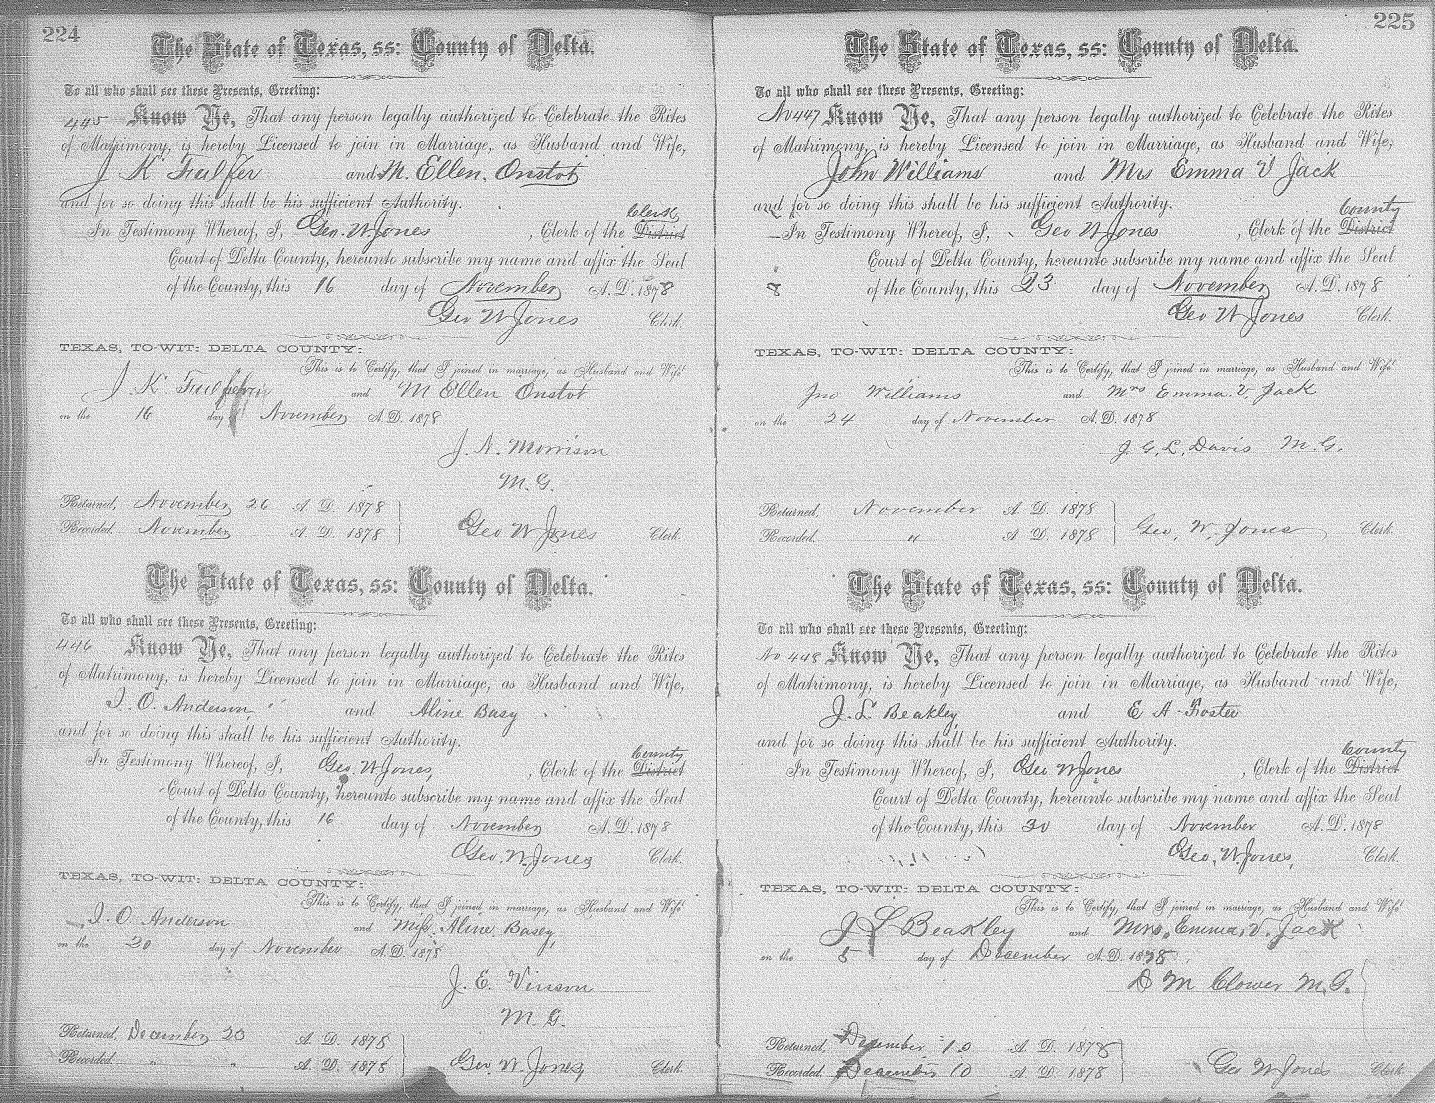 224
The State of Texas, ss: County of Delta.
To all who shall see these Presents, Greeting:
445 Know Ye, That any person legally authorized to Celebrate the Rites
of Matrimony, is hereby Licensed to join in Marriage, as Husband and Wife,
J K Fulffer and M. Ellen. Onstot
and for so doing this shall be his sufficient Authority.
Clerk
In Testimony Whereof, I, Geo. W. Jones, Clerk of the District
Court of Delta County, hereunto subscribe my name and affix the Seal
of the County, this 16 day of November A.D. 1878
Geo W Jones Clerk.
TEXAS, TO-WIT: DELTA COUNTY:
This is to Certify, that I joined in marriage, as Husband and Wife
J. K and M Ellen Onstot
on the 16 day November A.D. 1878
J. A. Morrison
M. G.
Returned, November 26 A. D. 1878
Recorded. November A. D. 1878 Geo W Jones Clerk.
The State of Texas, ss: County of Delta.
To all who shall see these Presents, Greeting:
446 Know Ye, That any person legally authorized to Celebrate the Rites
of Matrimony, is hereby Licensed to join in Marriage, as Husband and Wife,
J. O. Anderson and Aline Basy
and for so doing this shall be his sufficient Authority.
County
In Testimony Whereof, I, Geo. W Jones, Clerk of the District
Court of Delta County, hereunto subscribe my name and affix the Seal
of the County, this 16 day of November A.D. 1878
Geo. W. Jones Clerk.
TEXAS, TO-WIT: DELTA COUNTY:
This is to Certify, that I joined in marriage, as Husband and Wife
J. O. Anderson and Miss. Aline Basey,
on the 20 day of November A.D. 1878
J. E. Vinson
M. G.
Returned, December 20 A. D. 1878
Recorded. " " A. D. 1878 Geo. W. Jones, Clerk.
225
The State of Texas, ss: County of Delta.
To all who shall see these Presents, Greeting:
No 447 Know Ye, That any person legally authorized to Celebrate the Rites
of Matrimony, is hereby Licensed to join in Marriage, as Husband and Wife,
John Williams and Mrs Emma V Jack
and for so doing this shall be his sufficient Authority.
County
In Testimony Whereof, I, Geo W Jones, Clerk of the District
Court of Delta County, hereunto subscribe my name and affix the Seal
8 of the County, this 23 day of November A.D. 1878
Geo W Jones Clerk.
TEXAS, TO-WIT: DELTA COUNTY:
This is to Certify, that I joined in marriage, as Husband and Wife
Jno Williams and Mrs Emma. V. Jack
on the 24 day of November A.D. 1878
J. G. L. Davis M. G.
Returned, November A. D. 1878
Recorded. " A. D. 1878 Geo. W. Jones Clerk.
The State of Texas, ss: County of Delta.
To all who shall see these Presents, Greeting:
No 448 Know Ye, That any person legally authorized to Celebrate the Rites
of Matrimony, is hereby Licensed to join in Marriage, as Husband and Wife,
J. L Beakley, and E A Foster
and for so doing this shall be his sufficient Authority.
County
In Testimony Whereof, I, Geo W Jones, Clerk of the District
Court of Delta County, hereunto subscribe my name and affix the Seal
of the County, this 30 day of November A.D. 1878
Geo, W Jones, Clerk.
TEXAS, TO-WIT: DELTA COUNTY:
This is to Certify, that I joined in marriage, as Husband and Wife
J L Beakley and Mrs. Emma, V. Jack
on the 5 day of December A.D. 1878
D M Clower M. G.
Returned, December 10 A. D. 1878
Recorded. December 10 A. D. 1878 Geo W Jones Clerk.